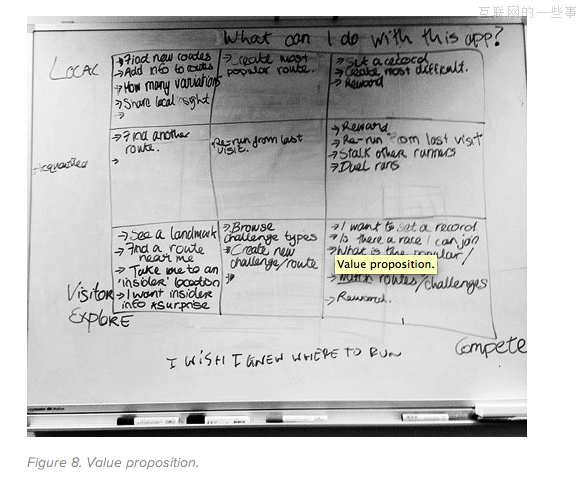 互联网的一些事
What can I do with this app?
LOCAL
→ Find new routes
→ Add info to routes
→ How many variations
→ Share local insight
→
→ Create most
popular route.
→ Set a record
→ Create most difficult.
→ Reward
Acquainted
→ Find another
route.
→
Re-run from last
visit.
→ Reward
→ Re-run from last visit
→ Stalk other runners
→ Duel runs
Visitor
→ See a landmark
→ Find a route
near me
→ Take me to an
'insider' location
→ I want insider
info & surprise
→ Browse
challenge types
→ Create new
challenge/route
→
→ I want to set a record
→ Is there a race I can join
→ What is the popular/
Value proposition.
→ Match routes/challenges
→ Reward.
EXPLORE
Compete
I WISH I KNEW WHERE TO RUN
Figure 8. Value proposition.